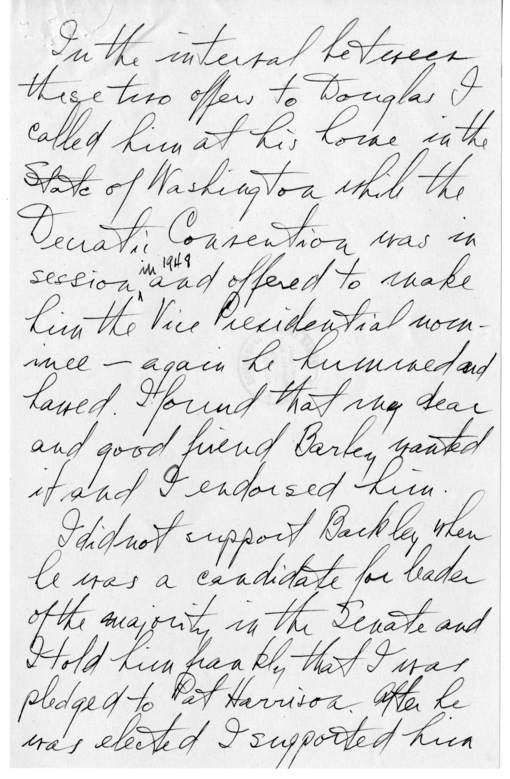 In the interval between
these two offers to Douglas I
called him at his home in the
State of Washington while the
Decratic Convention was in
session in 1948 and offered to make
him the Vice Presidential nom-
inee – again he hummed and
hawed. I found that my dear
and good friend Barley wanted
it and I endorsed him.
I did not support Barkley when
he was a candidate for leader
of the majority in the Senate and
I told him frankly that I was
pledged to Pat Harrison. After he
was elected I supported him